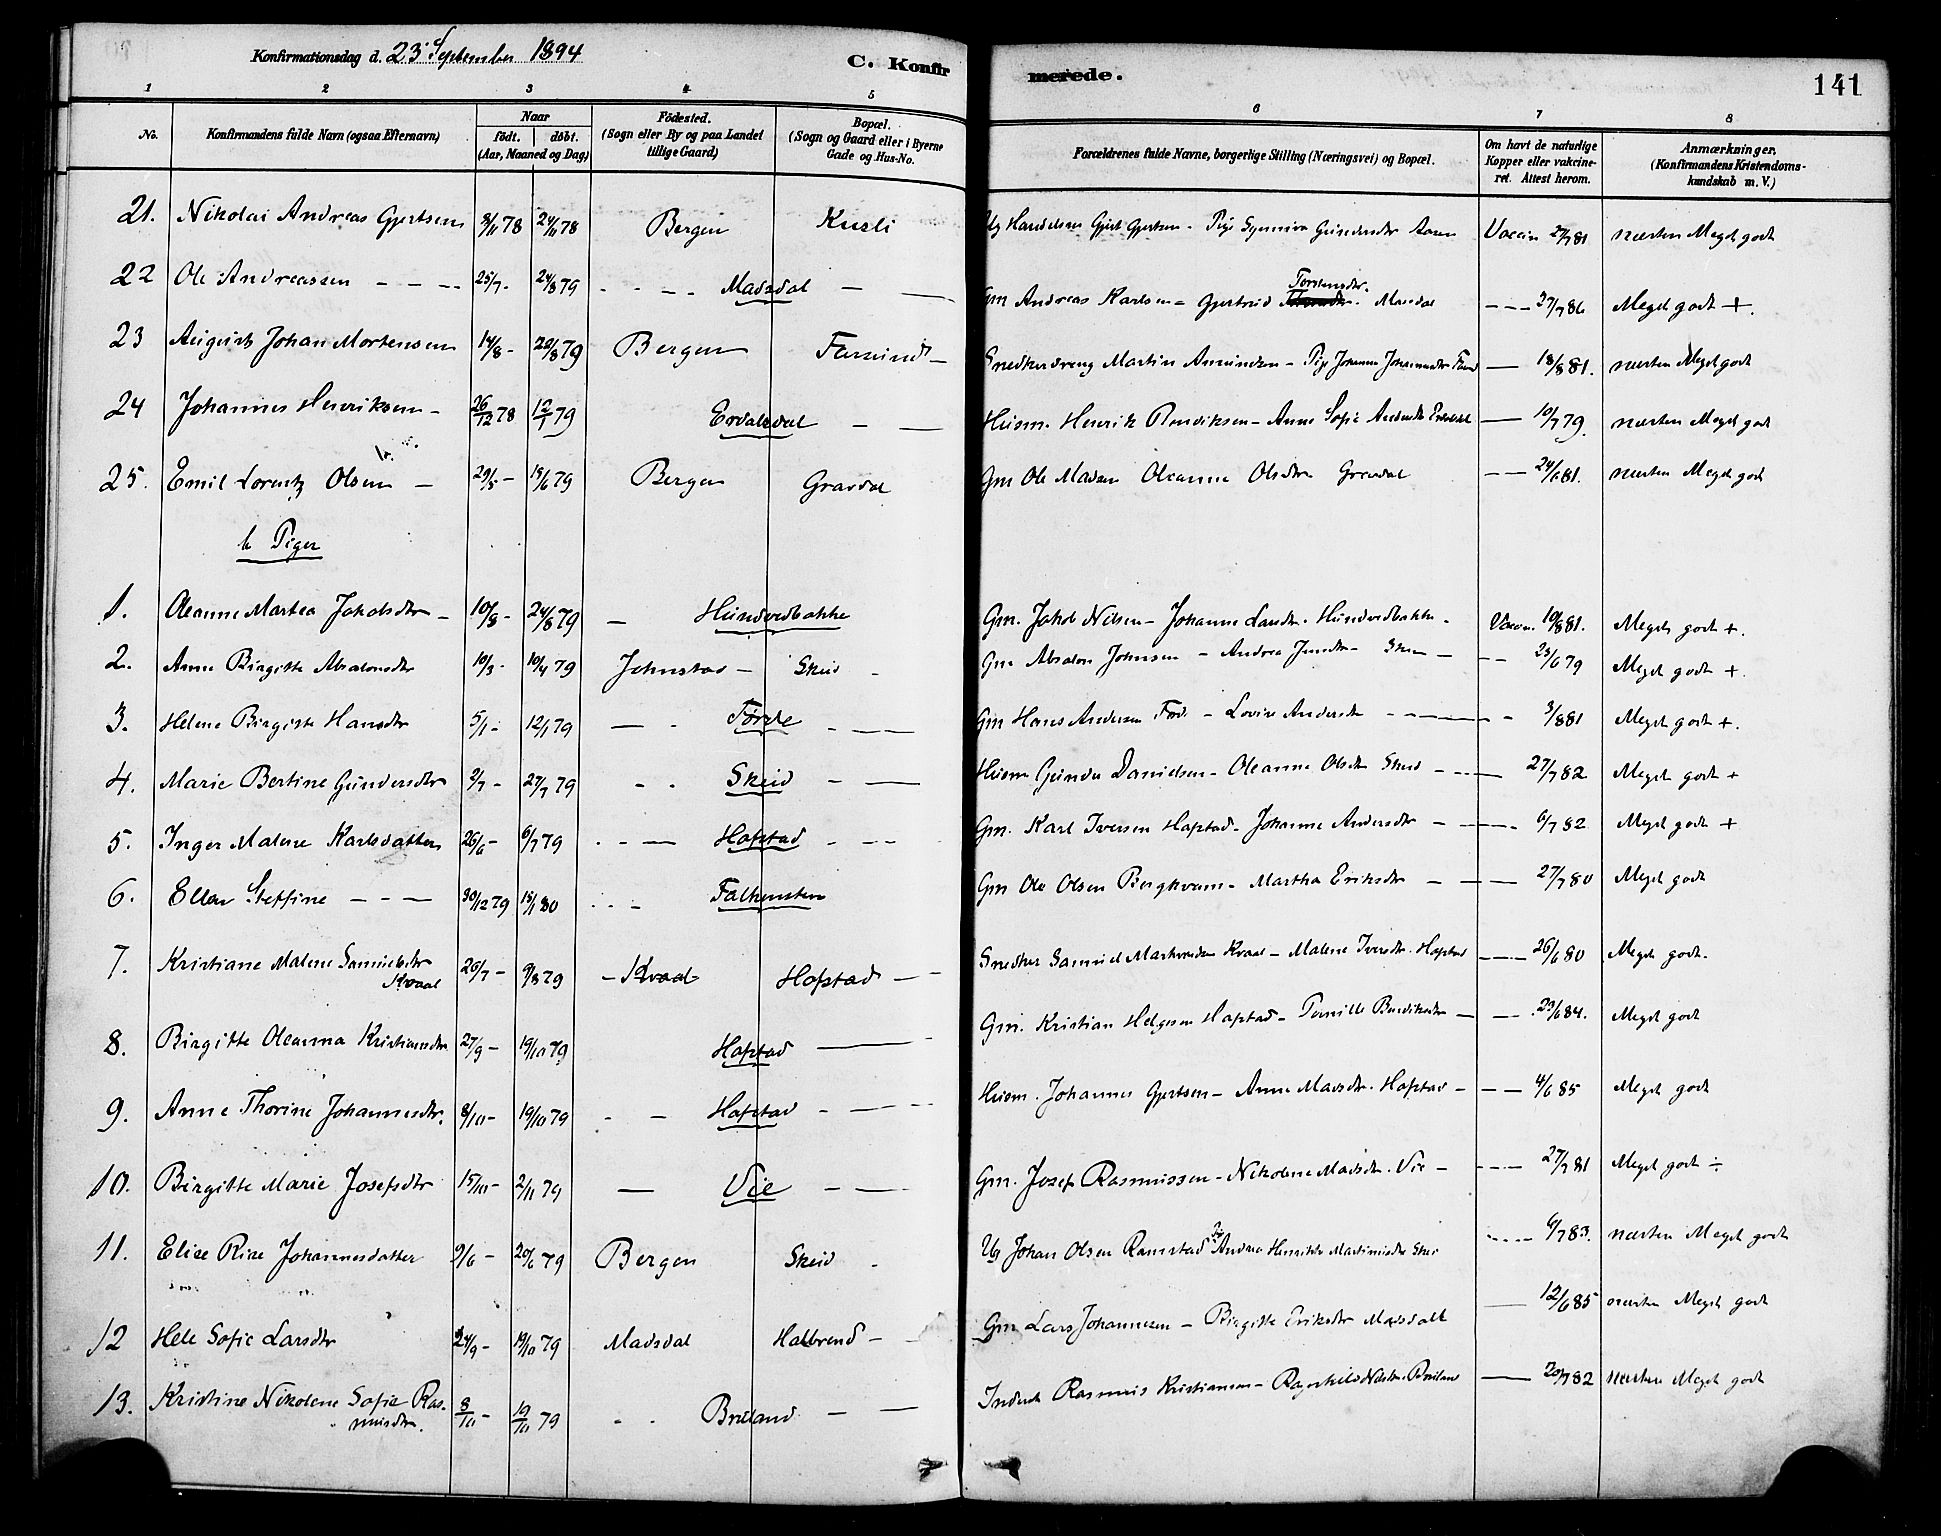 Konfirmationsdag d. 23' September 1894
C. Konfir
merede.
141
1 2 3 4 5 6 7 8
No.
Konfirmandens fulde Navn (ogsaa Efternavn)
Naar
födt. döbt.
(Aar, Maaned og Dag)
Födested.
(Sogn eller By og paa Landet
tillige Gaard)
Bopæl.
(Sogn og Gaard eller i Byerne
Gade og Hus-No.
Forældrenes fulde Navne, borgerlige Stilling (Næringsvei) og Bopæl.
Om havt de naturlige
Kopper eller vakcine-
ret. Attest herom.
Anmærkninger.
(Konfirmandens Kristendoms-
kundskab m. V.)
21. Nikolai Andreas Gjertsen 8/11 78 24/11 78 Bergen Kusli Ug Gjert Gjertsen - Pige Synniva Vaccin 2/7 81 næsten Meget godt
22 Ole Andreassen - - -- 25/7 - 24/8 79 - - - - Madsdal - - Gm Andreas Karlsen - Gjertrud Torstensdtr. Masdal --- 37/7 86 Meget godt +.
23 August Johan Mortensen 14/8 - 20/8 79 Bergen Farsund - Snedkerdreng Martin Amundsen - Pige Johanne Johannesdtr - 18/8 81. næsten Meget godt
24 Johannes Henriksen - 26/12 78 12/1 79 Erdalsdal - - Husm. Henrik Rendiksen - Anne Sofie Andersdtr Erdalsdal - 10/7 79. næsten Meget godt
25. Emil Lorentz Olsen - 29/5 - 15/6 79 Bergen Gravdal Gm Ole Madsen Oleanne Olsdtr Gravdal -- 24/6 81. næsten Meget godt
b Piger
1. Oleanne Martea Jakobsdtr - 10/8 - 24/8 79 - Hundvedbakke Gm. Jakob Nilsen - Johanne Larsdtr. Hundvedbakke - Vaccin. 10/8 81. Meget godt +.
2. Anne Birgitte Absalonsdtr 10/3 - 10/4 79 Johnstad - Skeid - Gm Absalon Johnsen - Andrea Jensdtr Skei - -- 23/6 79 Meget godt +.
3. Helene Birgitte Hansdtr 5/1 - 12/1 79 - - Førde - -- Gm Hans Andersen Førde - Lovise Andersdtr - - - - - 3/8 81 Meget godt +.
4. Marie Bertine Gundersdtr 2/7 - 27/7 79 - - Skeid - - Husm Gunder Danielsen - Oleanne Olsdtr Skeid - -- - 27/7 82 Meget godt +
5. Inger Malene Karlsdatter 26/6 - 6/7 79 - - - Hafstad - -- Gm. Karl Iversen Hafstad - Johanne Andersdtr - - - 6/7 82 Meget godt +
6. Ellen Steffine - - - 30/12 79 18/1 80 - - - Falkensten Gm Ole Olsen Bergkvam - Martha Eriksdtr - - - 27/7 80 Meget godt
7. Kristiane Malene Samuelsdtr
Kvaal 20/7 - 9/8 79 - Kvaal Hafstad - - Snedker Samuel Kvaal - Malene Iversdtr. Hafstad --- 26/6 80 Meget godt.
8. Birgitte Oleanna Kristiansdtr 27/9 - 19/10 79 Hafstad - Gm. Kristian Helgesen Hafstad - Pernille Bendiksdtr - -- 23/6 84. Meget godt
9. Anne Thorine Johannesdtr. 8/10 - 19/10 79 - - Hafstad - -- Husm. Johannes Gjertsen - Anne Madsdtr. Hafstad - -- 4/6 85 Meget godt
10. Birgitte Marie Josefsdtr 15/10 - 2/11 79 - Vie - -- Gm. Josef Rasmussen - Nikolene Madsdtr. Vie - --- 27/7 81 Meget godt ÷
11. Elise Rise Johannesdatter 9/6 - 20/6 79 Bergen Skeid - Ug Johan Olsen Ramstad Pig Andrea Henrikke Martinusdtr Skei ---- 6/7 83. næsten Meget godt
12 Hele Sofie Larsdtr 24/9 - 19/10 79 Madsdal Halbrend - - Gm Lars Johannesen - Birgitte Eriksdtr Madsdall - 12/6 85 næsten Meget godt
13. Kristine Nikolene Sofie Ras-
musdtr. 8/10 - 19/10 79 - - Breland - - Inderst Rasmus Kristiansen - Ragnhild Nilsdtr. Breland - 20/7 82 næsten Meget godt